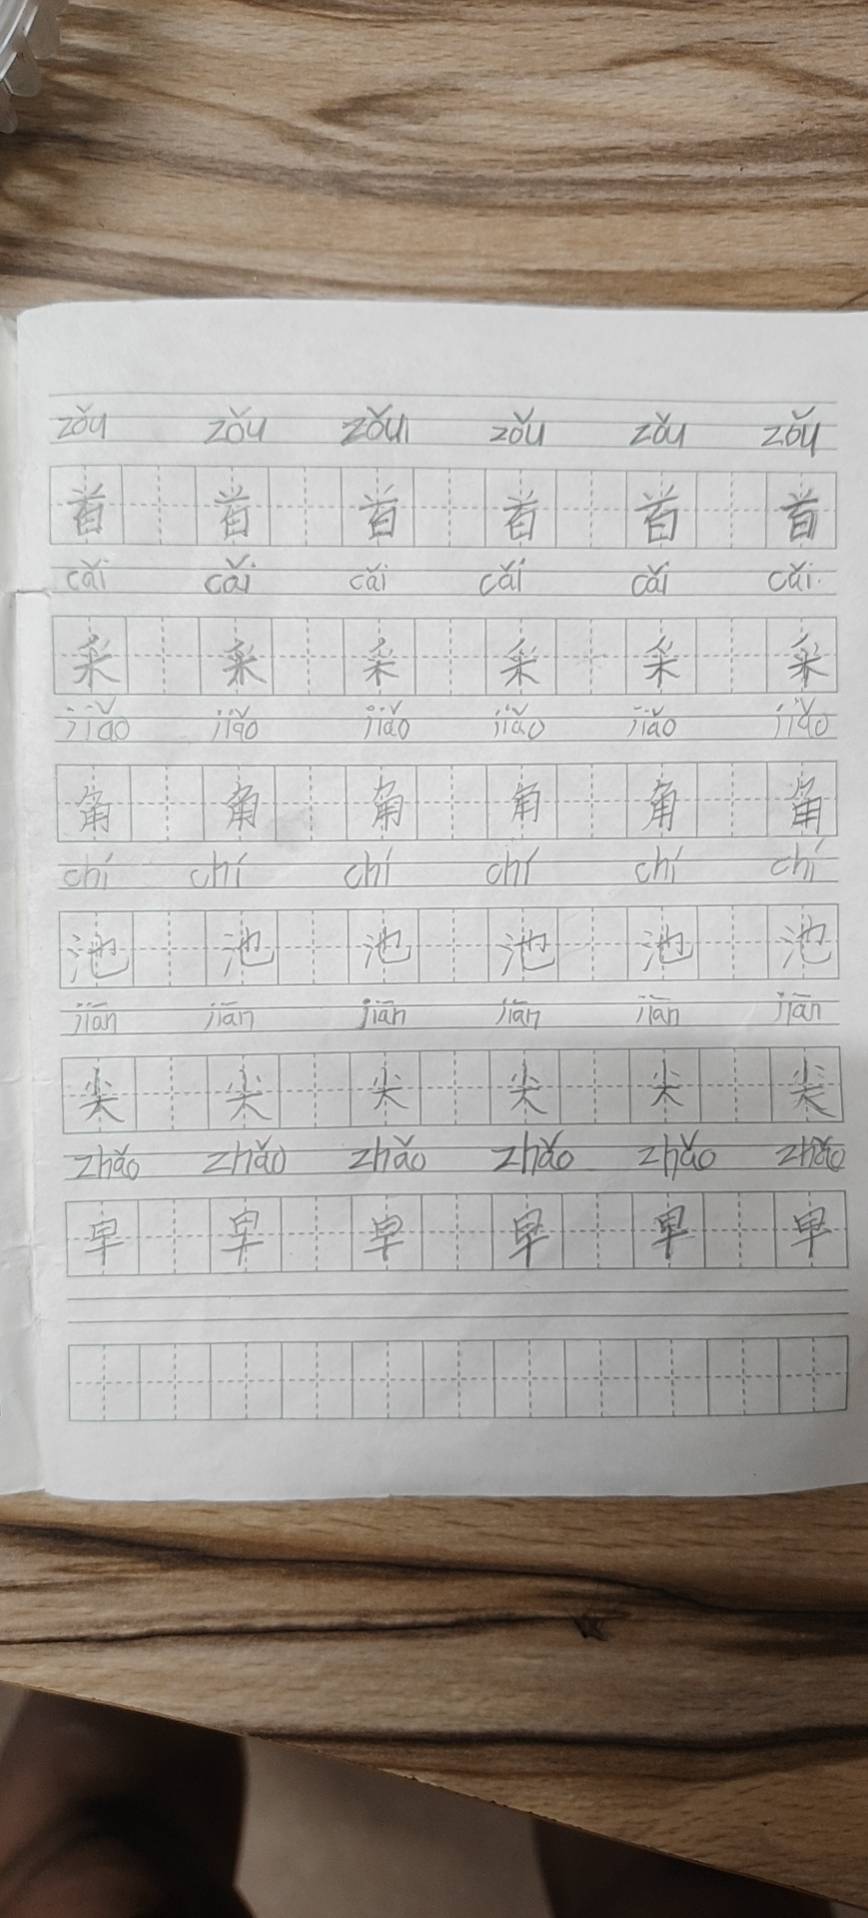 zǒu zǒu zǒu zǒu zǒu zǒu
首 首 首 首 首 首
cǎi cǎi cǎi cǎi cǎi cǎi
采 采 采 采 采 采
jiǎo jiǎo jiǎo jiǎo jiǎo jiǎo
角 角 角 角 角 角
chí chí chí chí chí chí
池 池 池 池 池 池
jiān jiān jiān jiān jiān jiān
尖 尖 尖 尖 尖 尖
zhǎo zhǎo zhǎo zhǎo zhǎo zhǎo
早 早 早 早 早 早